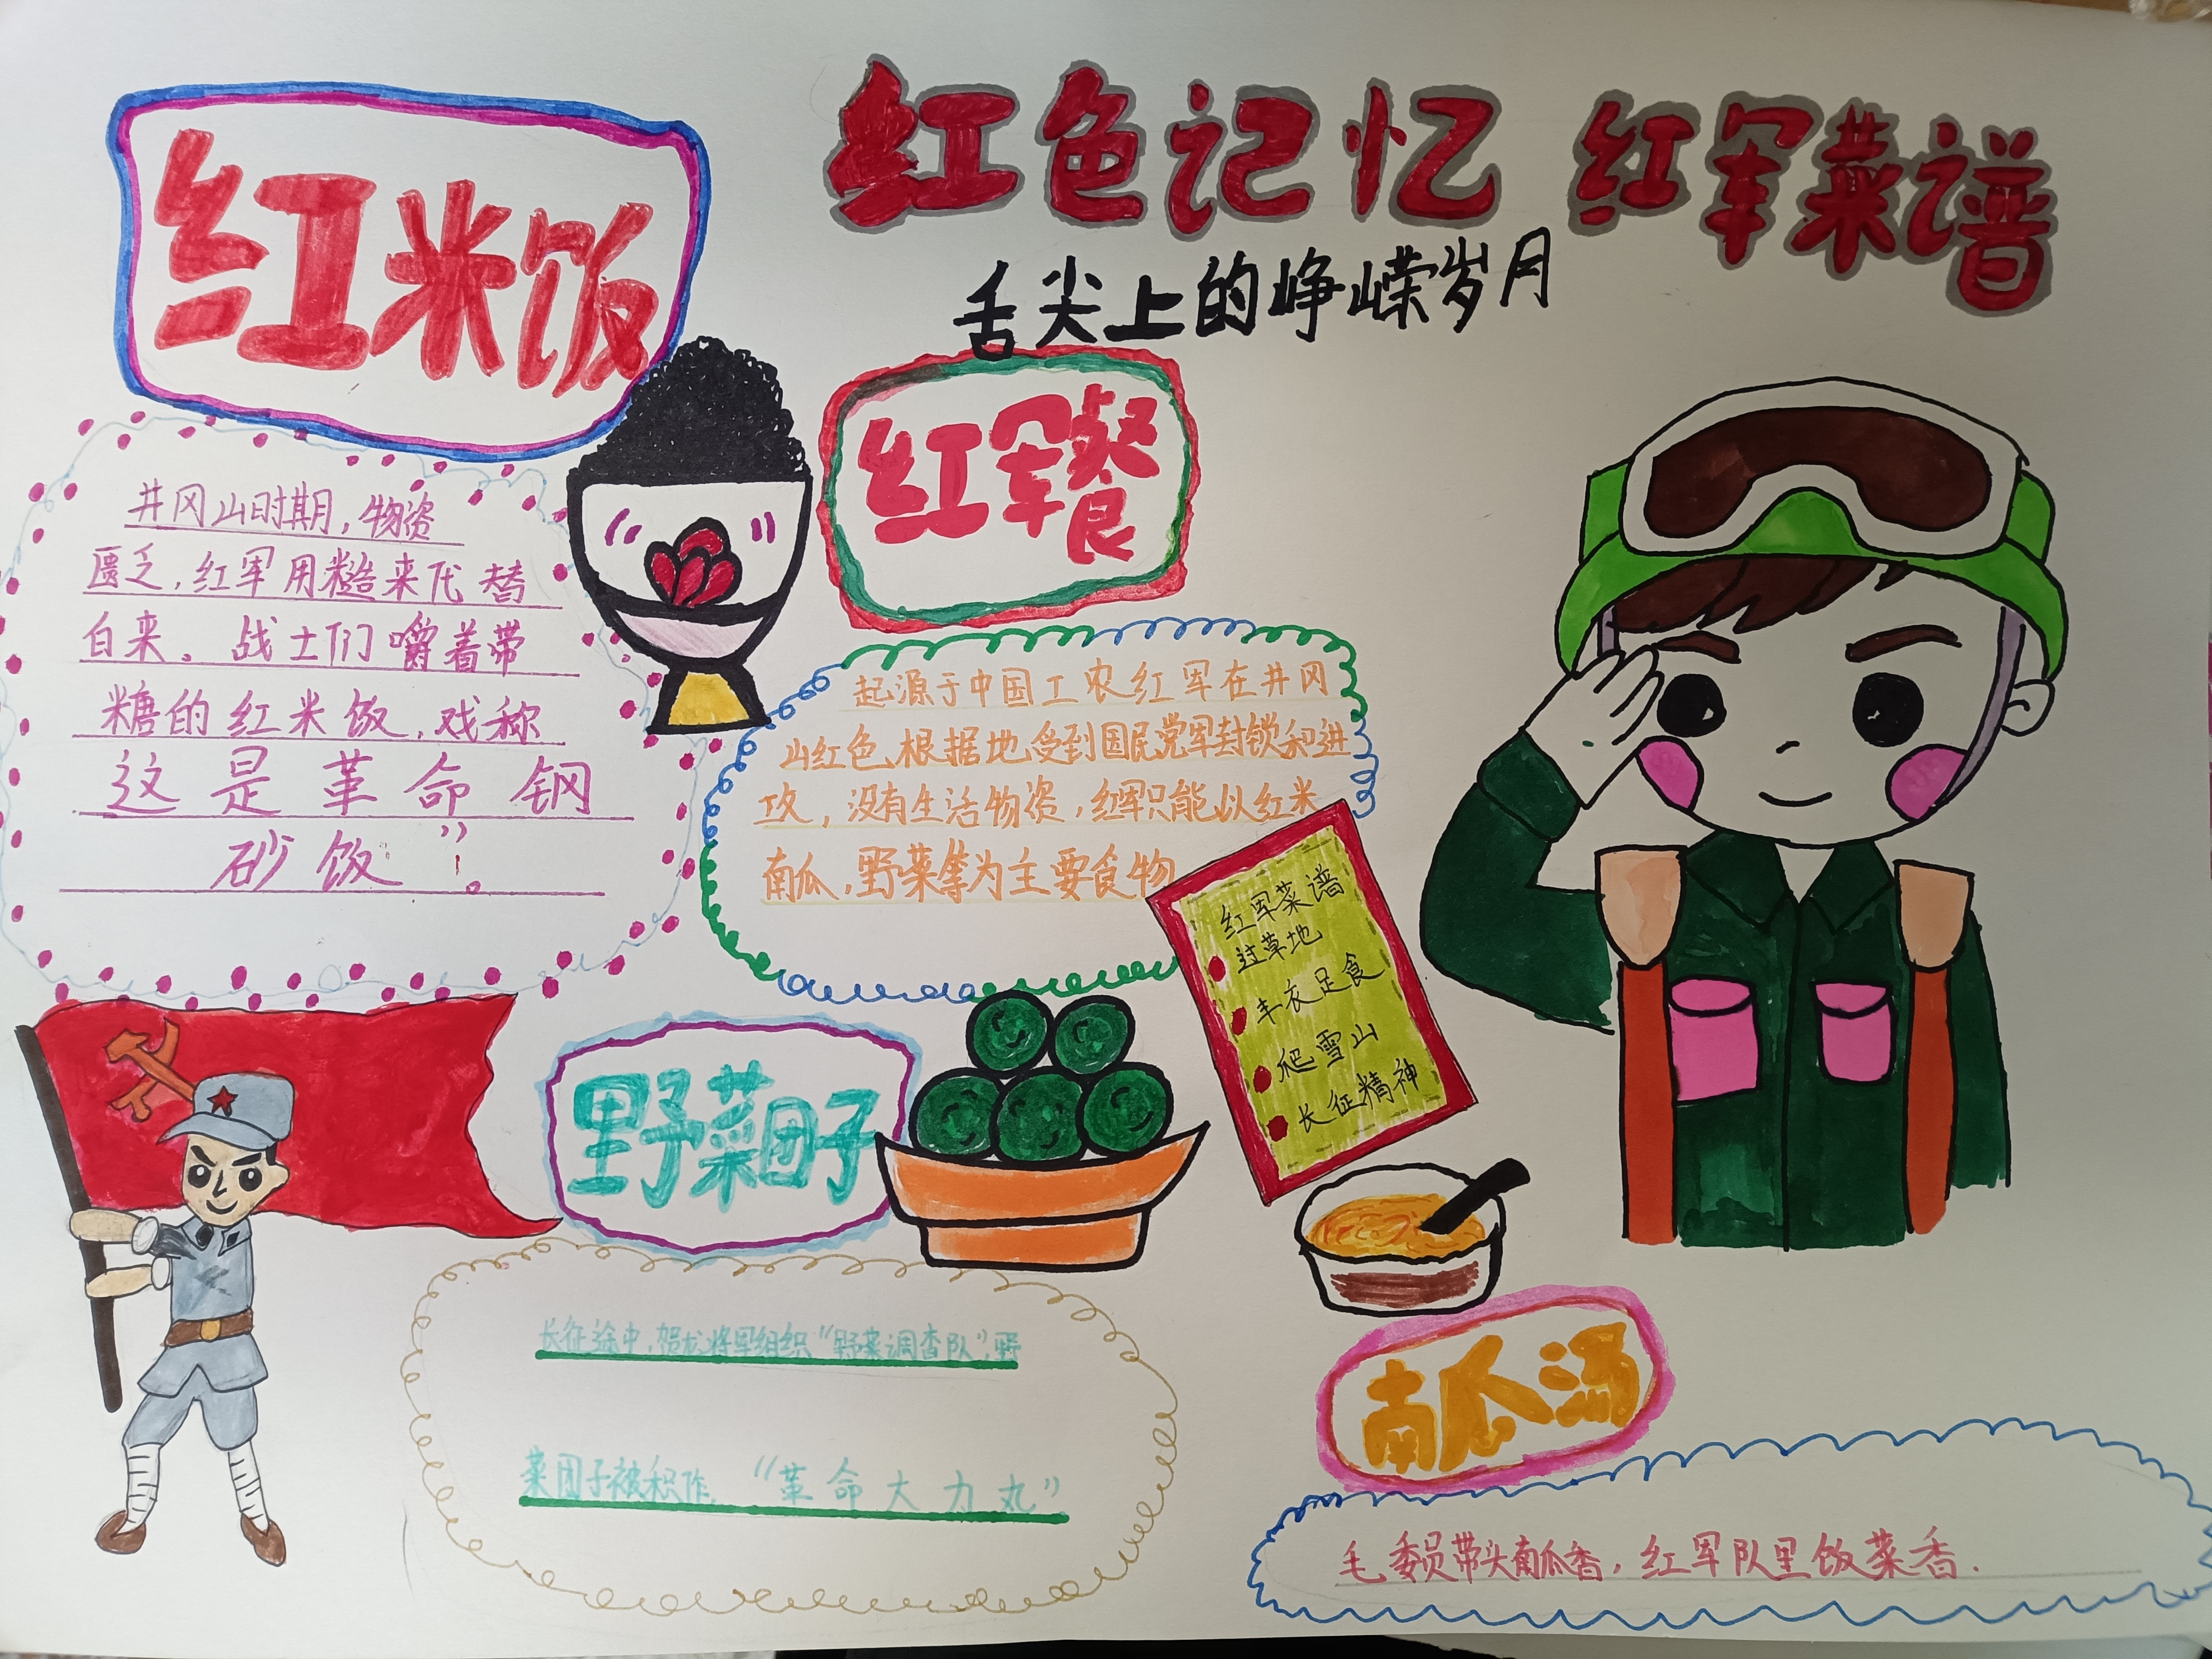 红色记忆 红军菜谱
舌尖上的峥嵘岁月
红米饭
井冈山时期，物资
匮乏，红军用糙来代替
白来。战士们嚼着带
糖的红米饭，戏称
这是革命钢
砂饭”。
红军餐
起源于中国工农红军在井冈
山红色根据地，受到国民党军封锁和进
攻，没有生活物资，红军只能以红米
南瓜，野菜等为主要食物
红军菜谱
过草地
丰衣足食
爬雪山
长征精神
野菜团子
长征途中，贺龙将军组织“野菜调查队”，野
菜团子被积作，“革命大力丸”
南瓜汤
毛委员带头南瓜香，红军队里饭菜香.